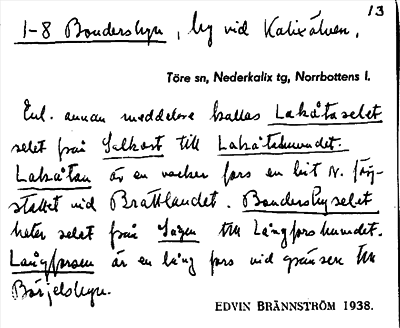 13
1-8 Bondersbyn, by vid Kalixälven.
Töre sn, Nederkalix tg, Norrbottens l.
Enl. annan meddelare kallas Lakåtaselet
selet från Salkort till Lakåtahuvudet.
Lakåtan är en vacker fors en bit N. färj-
stället vid Brattlandet. Bondersbyselet
heter selet från till Långforshuvudet.
Långforsen är en lång fors vid gränsen till
Börjelsbyn.
EDVIN BRÄNNSTRÖM 1938.